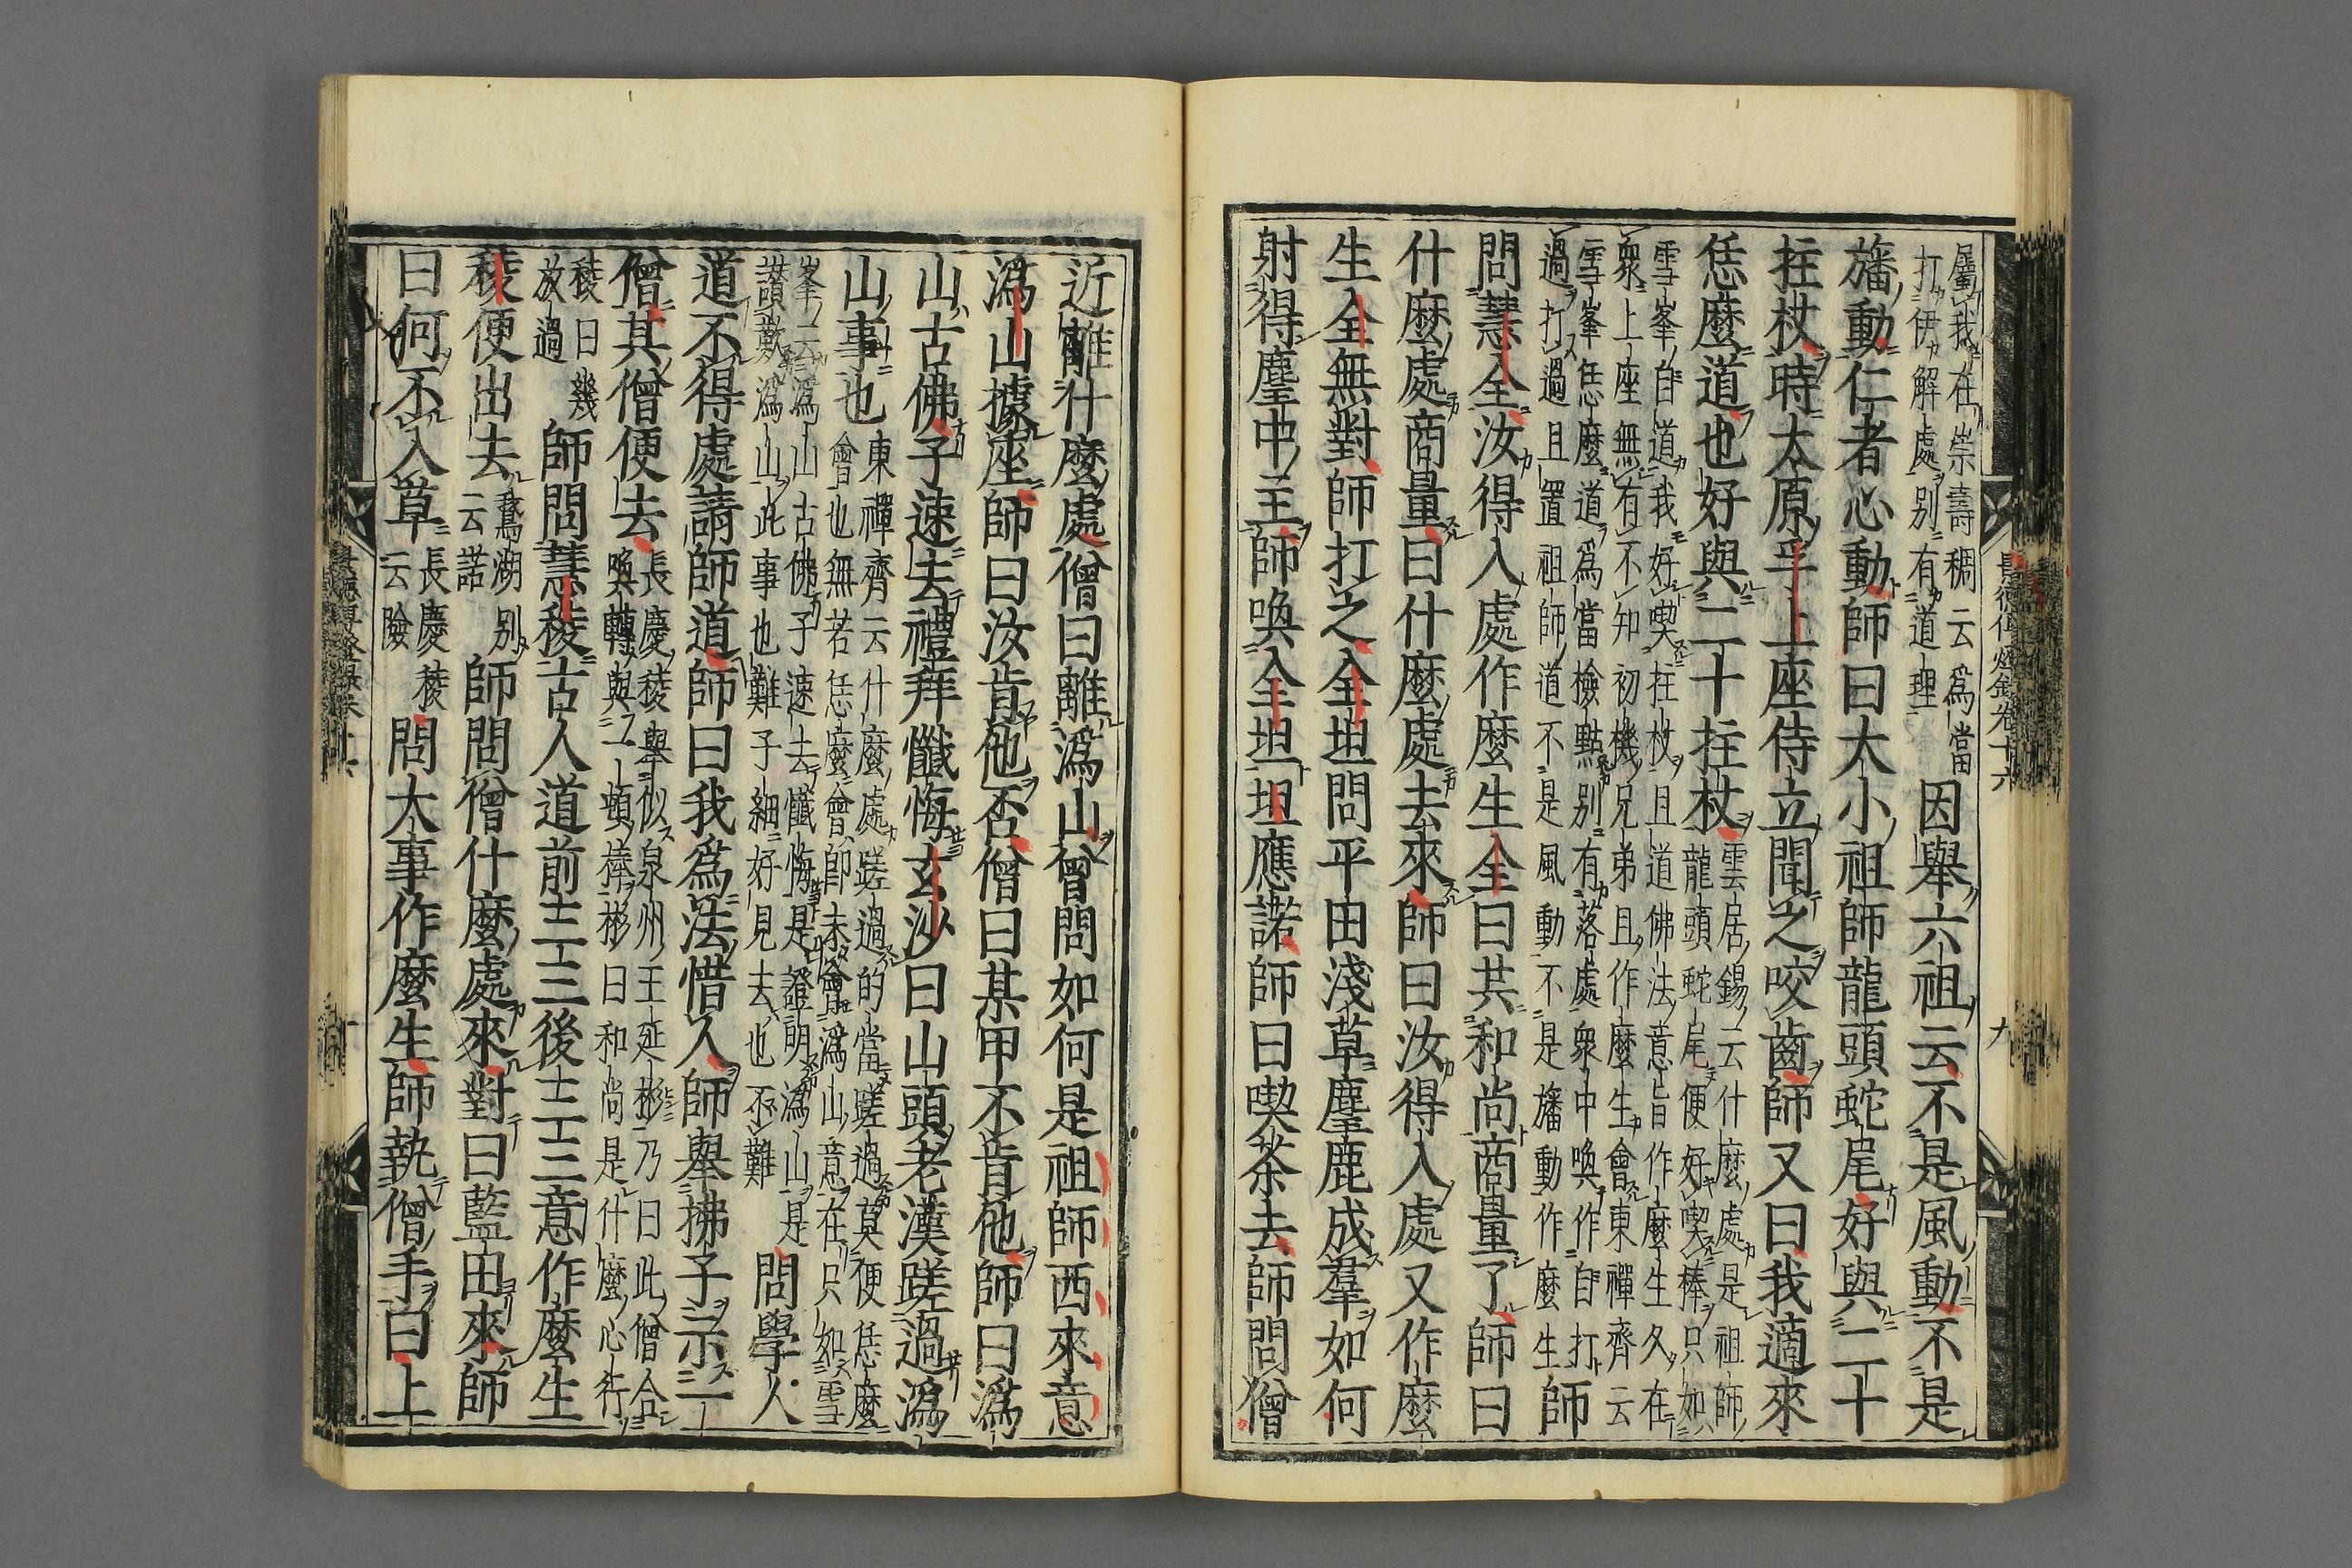 屬我在崇壽稠云爲當
打伊解處別有道理
因舉六祖云不是風動不是
旛動仁者心動師曰大小祖師龍頭蛇尾好與二十
拄杖時太原孚上座侍立聞之咬齒師又曰我適來
恁麼道也好與二十拄杖
雲居錫云什麼處是祖師
龍頭蛇尾便好喫棒只如
雪峯自道我好喫拄杖且道佛法意旨作麼生久在
衆上座無有不知初機兄弟且作麼生會東禪齊云
雪峯恁麼道爲當檢點別有落處衆中喚作自打
過打過且置祖師道不是風動不是旛動作麼生
師
問慧全汝得入處作麼生全曰共和尚商量了師曰
什麼處商量曰什麼處去來師曰汝得入處又作麼
生全無對師打之全坦問平田淺草麈鹿成羣如何
射得麈中主師喚全坦坦應諾師曰喫茶去師問僧
近離什麼處僧曰離溈山曾問如何是祖師西來意
溈山據座師曰汝肯他否僧曰某甲不肯他師曰溈
山古佛子速去禮拜懺悔玄沙曰山頭老漢蹉過溈
山事也
東禪齊云什麼處蹉過的當蹉過莫便恁麼
會也無若恁麼會卽未會溈山意在只如雪
峯云溈山古佛子速去懺悔是證明溈山是
讃歎溈山此事也難子細好見去也不難
問學人
道不得處請師道師曰我爲法惜人師舉拂子示一
僧其僧便去
長慶稜舉似泉州王延彬乃曰此僧合
喚轉與一頓棒彬曰和尚是什麼心行
稜曰幾
放過
師問慧稜古人道前三三後三三意作麼生
稜便出去
鵞湖別
云諾
師問僧什麼處來對曰藍田來師
曰何不入草
長慶稜
云險
問大事作麼生師執僧手曰上
景德傳燈錄卷十六
九